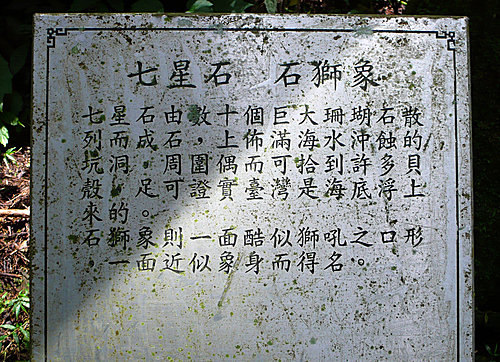 七星石　石獅象
七星石由數十個巨大珊瑚石散
列而成石，上佈滿海水沖蝕的
坑洞，周圍偶而可拾到許多貝
殼，足可證實臺灣是海底浮上
來的。
石獅象則一面酷似獅吼之口形
。一面近似象身而得名。